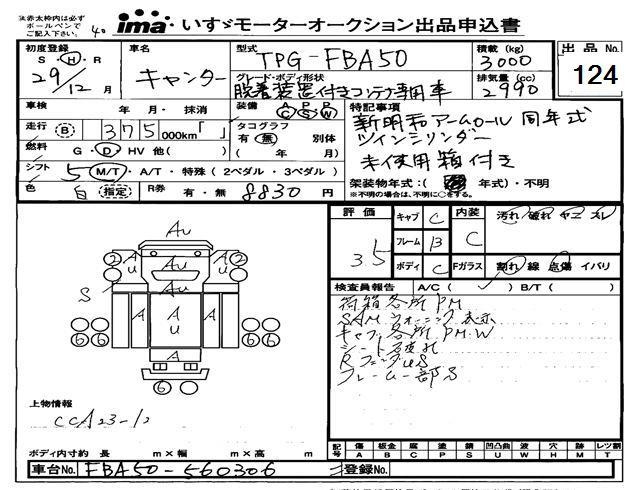 ※赤太枠内は必ず
ボールペンで
ご記入下さい。
40
ima いすゞモーターオークション出品申込書
初度登録
S・H・R
29/12 月
車名
キャンター
型式
TPG-FBA50
グレード・ボディ形状
脱着装置付きコンテナ専用車
積載 (kg)
3000
排気量 (cc)
2990
出品 No.
124
車検 年・月・抹消
装備 A C P S P W
走行 B 375 000km「 」
タコグラフ
有・無 別体
( 年 月)
燃料 G・D・HV 他( )
シフト 5 M/T・A/T・特殊(2ペダル・3ペダル)
色 白 指定 R券 有・無 8830 円
特記事項
新明和アームロール 同年式
ツインシリンダー
未使用箱付き
架装物年式:( 年式)・不明
※不明の場合は、不明に○をする。
評価
3.5
キャブ C
フレーム B
ボディ C
内装
C
Fガラス
汚れ 破れ ヤニ スレ
割れ 線 点傷 イバリ
検査員報告 A/C( ) B/T( )
荷箱各所PM
SAMウォーニング表示
キャブ各所PM.W
シート破れ
RフェンダUS
フレーム一部S
Au
A
u
Au
A
u
2
2
S
A
A
u
A
A
6
6
6
6
6
6
上物情報
CCA23-12
ボディ内寸約 長 m×幅 m×高 m
車台No. FBA50-560306
記号
傷 板金 腐 塗 錆 凹凸曲 波 穴 跡 レツ割
A B C P S U W H M T
登録No.